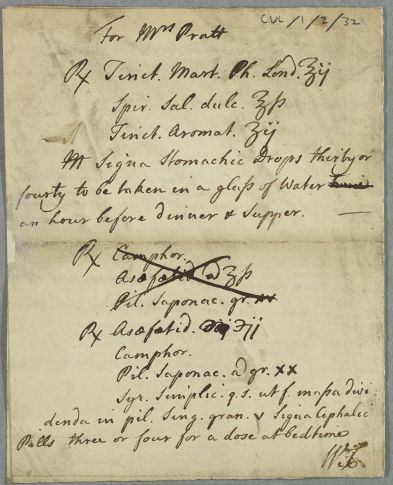 CUL/1/2/32
For Mrs Pratt
℞ Tinct. Mart. Ph. Lond. ℥ij
Spir. Sal. dulc. ℥ss
Tinct. Aromat. ℥ij
M Signa Stomachic Drops thirty or
fourty to be taken in a glass of water
an hour before dinner & supper.
℞ Camphor.
Asæfœtid. a ʒss
Pil. Saponac. gr. xx
℞ Asæfœtid. ℈ij
Camphor.
Pil. Saponac. a gr. xx
Syr. Simplic. q.s. ut f. massa divi-
denda in pil. Sing. gran. v Signa Cephalic
Pills three or four for a dose at bedtime